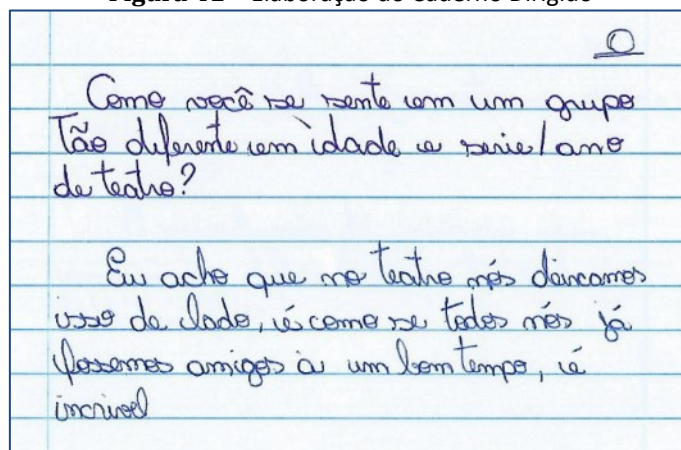 O
Como você se sente em um grupo
Tão diferente em idade e serie/ano
de teatro?
Eu acho que no teatro nós deixamos
isso de lado, é como se todos nós já
fossemos amigos à um bom tempo, é
incrivel